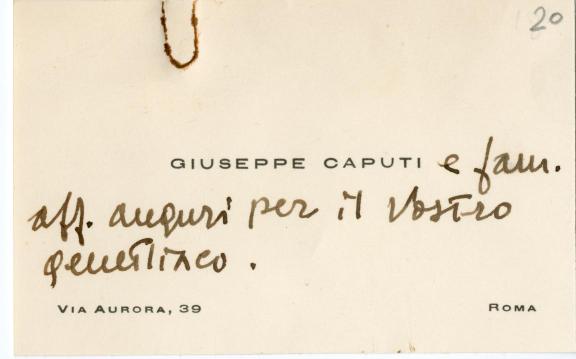 20
GIUSEPPE CAPUTI e fam.
aff. auguri per il Vostro
genetliaco.
VIA AURORA, 39 ROMA